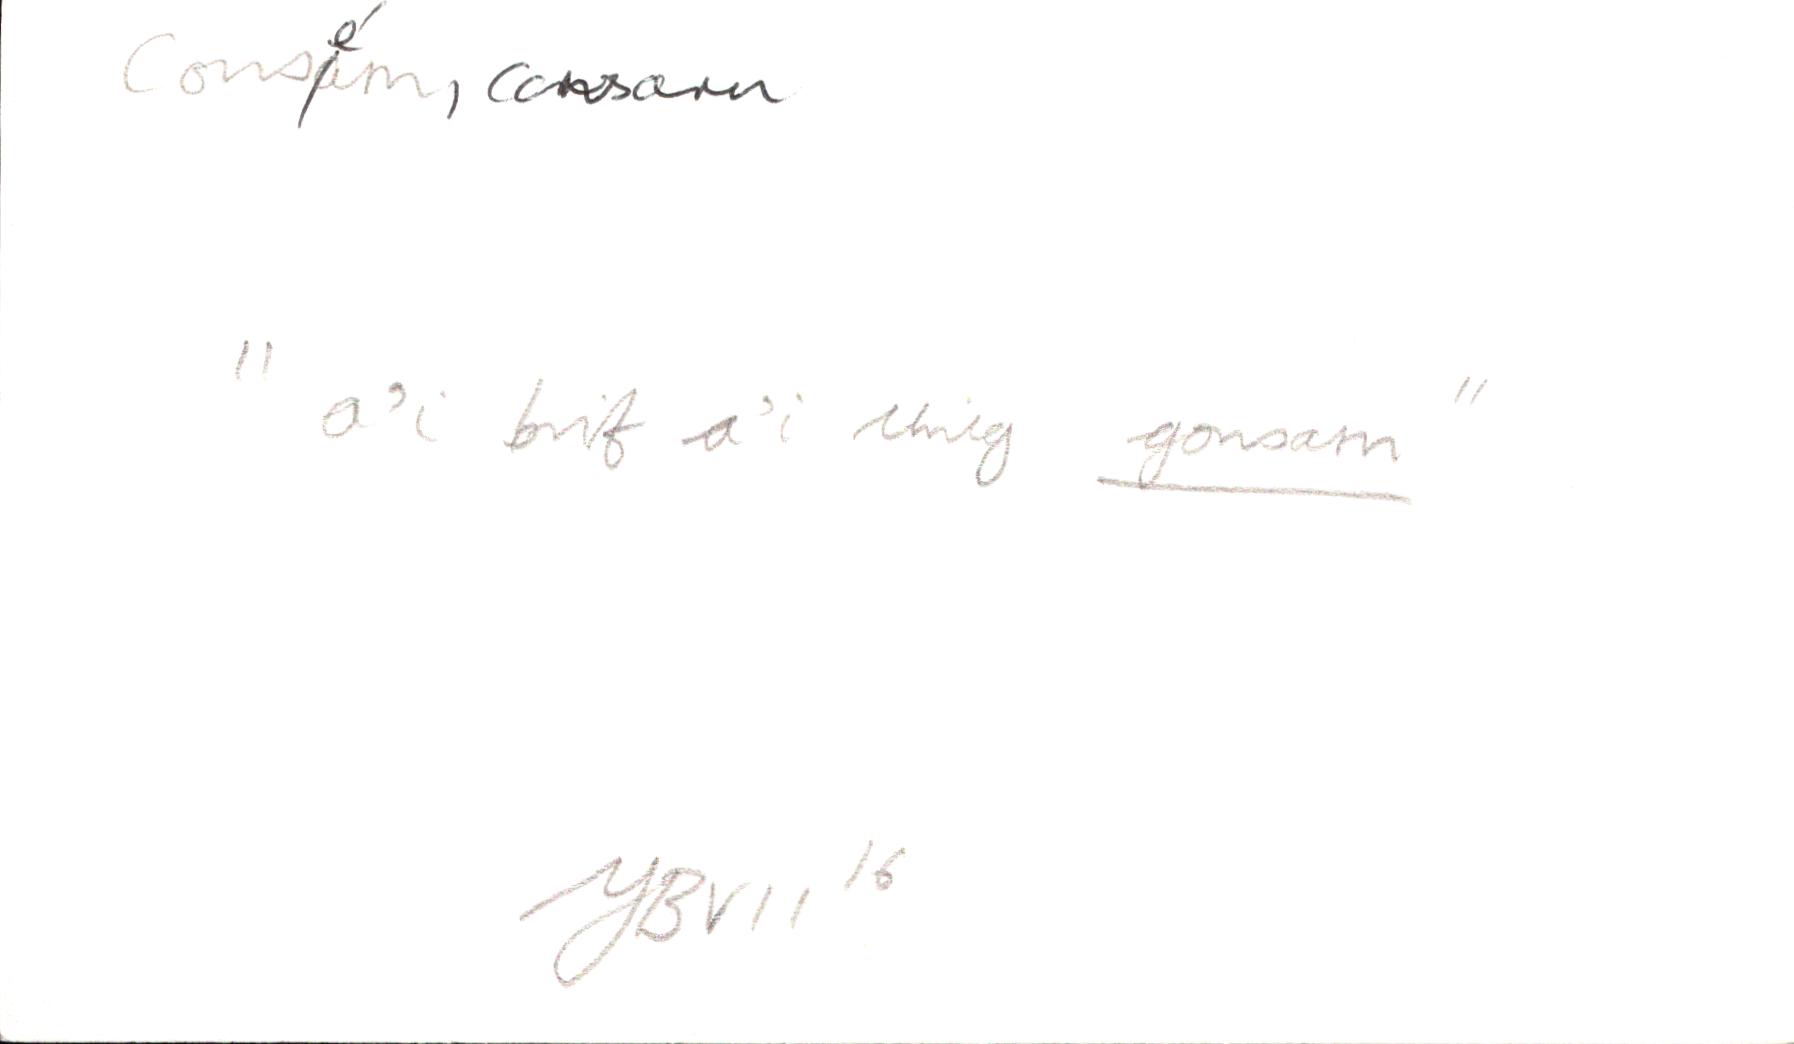 Consérn, consarn
"a'i brif a'i rhieg gonsarn"
YBVII 16